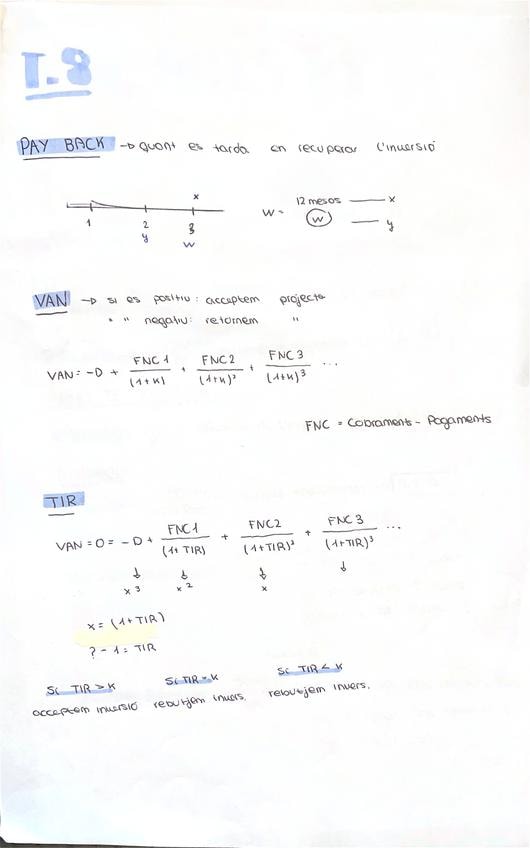 T.8
PAY BACK → quant es tarda en recuperar l'inversió
x
1 2 3
y w
W = 12 mesos — x
w — y
VAN → si es positiu: acceptem projecte
" " negatiu: retornem "
VAN = -D + FNC1/(1+K) + FNC2/(1+K)² + FNC3/(1+K)³ ...
FNC = Cobraments - Pagaments
TIR
VAN = 0 = -D + FNC1/(1+TIR) + FNC2/(1+TIR)² + FNC3/(1+TIR)³ ...
↓ ↓ ↓ ↓
x3 x2 x
x = (1+TIR)
? - 1 = TIR
Si TIR > K Si TIR = K Si TIR < K
acceptem inversió rebutjem invers. rebutjem invers.